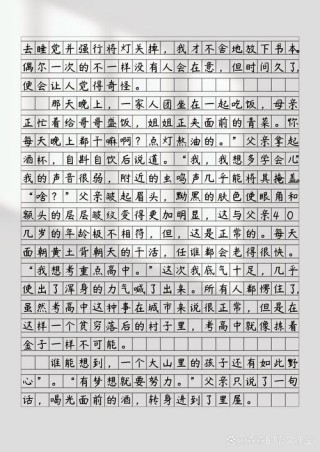 去睡觉并强行将灯关掉，我才不舍地放下书本
偶尔一次的不一样没有人会在意，但时间久了，
便会让人觉得奇怪。
那天晚上，一家人团坐在一起吃饭，母亲
正忙着给哥哥盛饭，姐姐正夹面前的青菜。“你
每天晚上都干嘛啊？点灯熬油的。”父亲拿起
酒杯，自斟自饮后说道。“我，我想多学会儿
我的声音很弱，附近的虫鸣声几乎能将其掩盖
“啥？”父亲皱起眉头，黝黑的肤色使眼角和
额头的层层皱纹显得更加明显，这与父亲40
几岁的年龄极不相符，但，这是正常的。每天
面朝黄土背朝天的干活，任谁都会老得很快。
“我想考重点高中。”这次我底气十足，几乎
使出了浑身的力气喊了出来。所有人都愣住了，
虽然考高中这种事在城市来说很正常，但是在
这样一个贫穷落后的村子里，考高中就像拣着
金子一样不可能。
谁能想到，一个大山里的孩子还有如此野
心”。“有梦想就要努力。”父亲只说了一句
话，喝光面前的酒，转身进到了里屋。